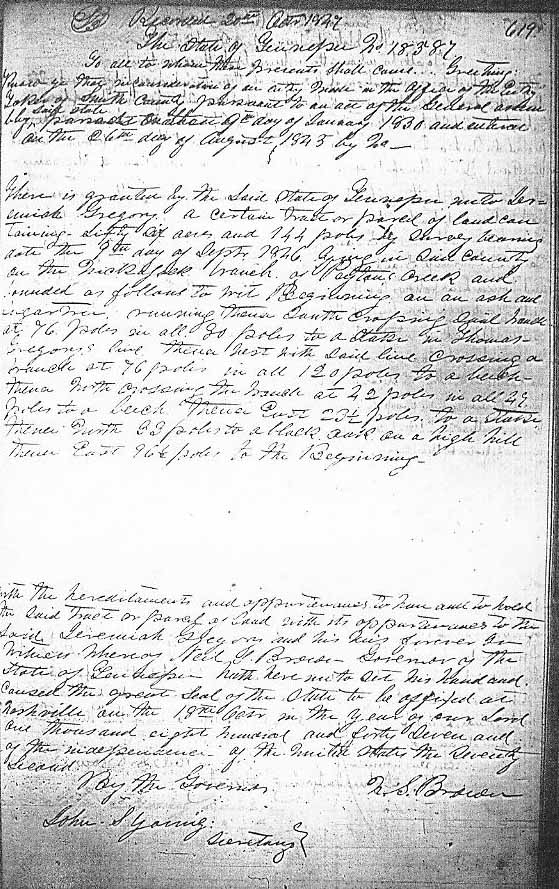 Recorded 20th Octr 1847
619
The State of Tennessee No 18387
To all to whom these presents shall come.. Greeting:
Know ye that in consideration of an entry made in the office of the Entry
Taker of Smith County, pursuant to an act of the General assem
bly of said State passed on the 9th day of January 1830 and entered
on the 26th day of August 1845 by No
There is granted by the said State of Tennessee unto Jer-
emiah Gregory a certain tract or parcel of land con
taining fifty six acres and 144 poles by survey bearing
date the 9th day of Septr 1846. lying in said county
on the branch of Peytons Creek and
bounded as follows to wit Beginning on an ash and
sugartree, running thence South Crossing branch
at 76 poles in all 80 poles to a stake in Thomas
Gregorys line thence West with said line crossing a
branch at 76 poles in all 120 poles to a beech
thence North crossing the branch at 42 poles in all 49
poles to a beech thence East 23½ poles to a stake
thence North 33 poles to a black oak on a high hill
thence East 96½ poles to the Beginning-
with the hereditaments and appurtenances to have and to hold
the said tract or parcel of land with its appurtenances to the
said Jeremiah Gregory and his heirs forever In
Witness Whereof Neil S Brown Governor of the
State of Tennessee hath hereunto set his hand and
caused the great Seal of the State to be affixed at
Nashville on the 18th Octr in the year of our Lord
one thousand eight hundred and forty seven and
of the independence of the United States the seventy
second
By the Governor
N. S. Brown
John S Young
Secretary